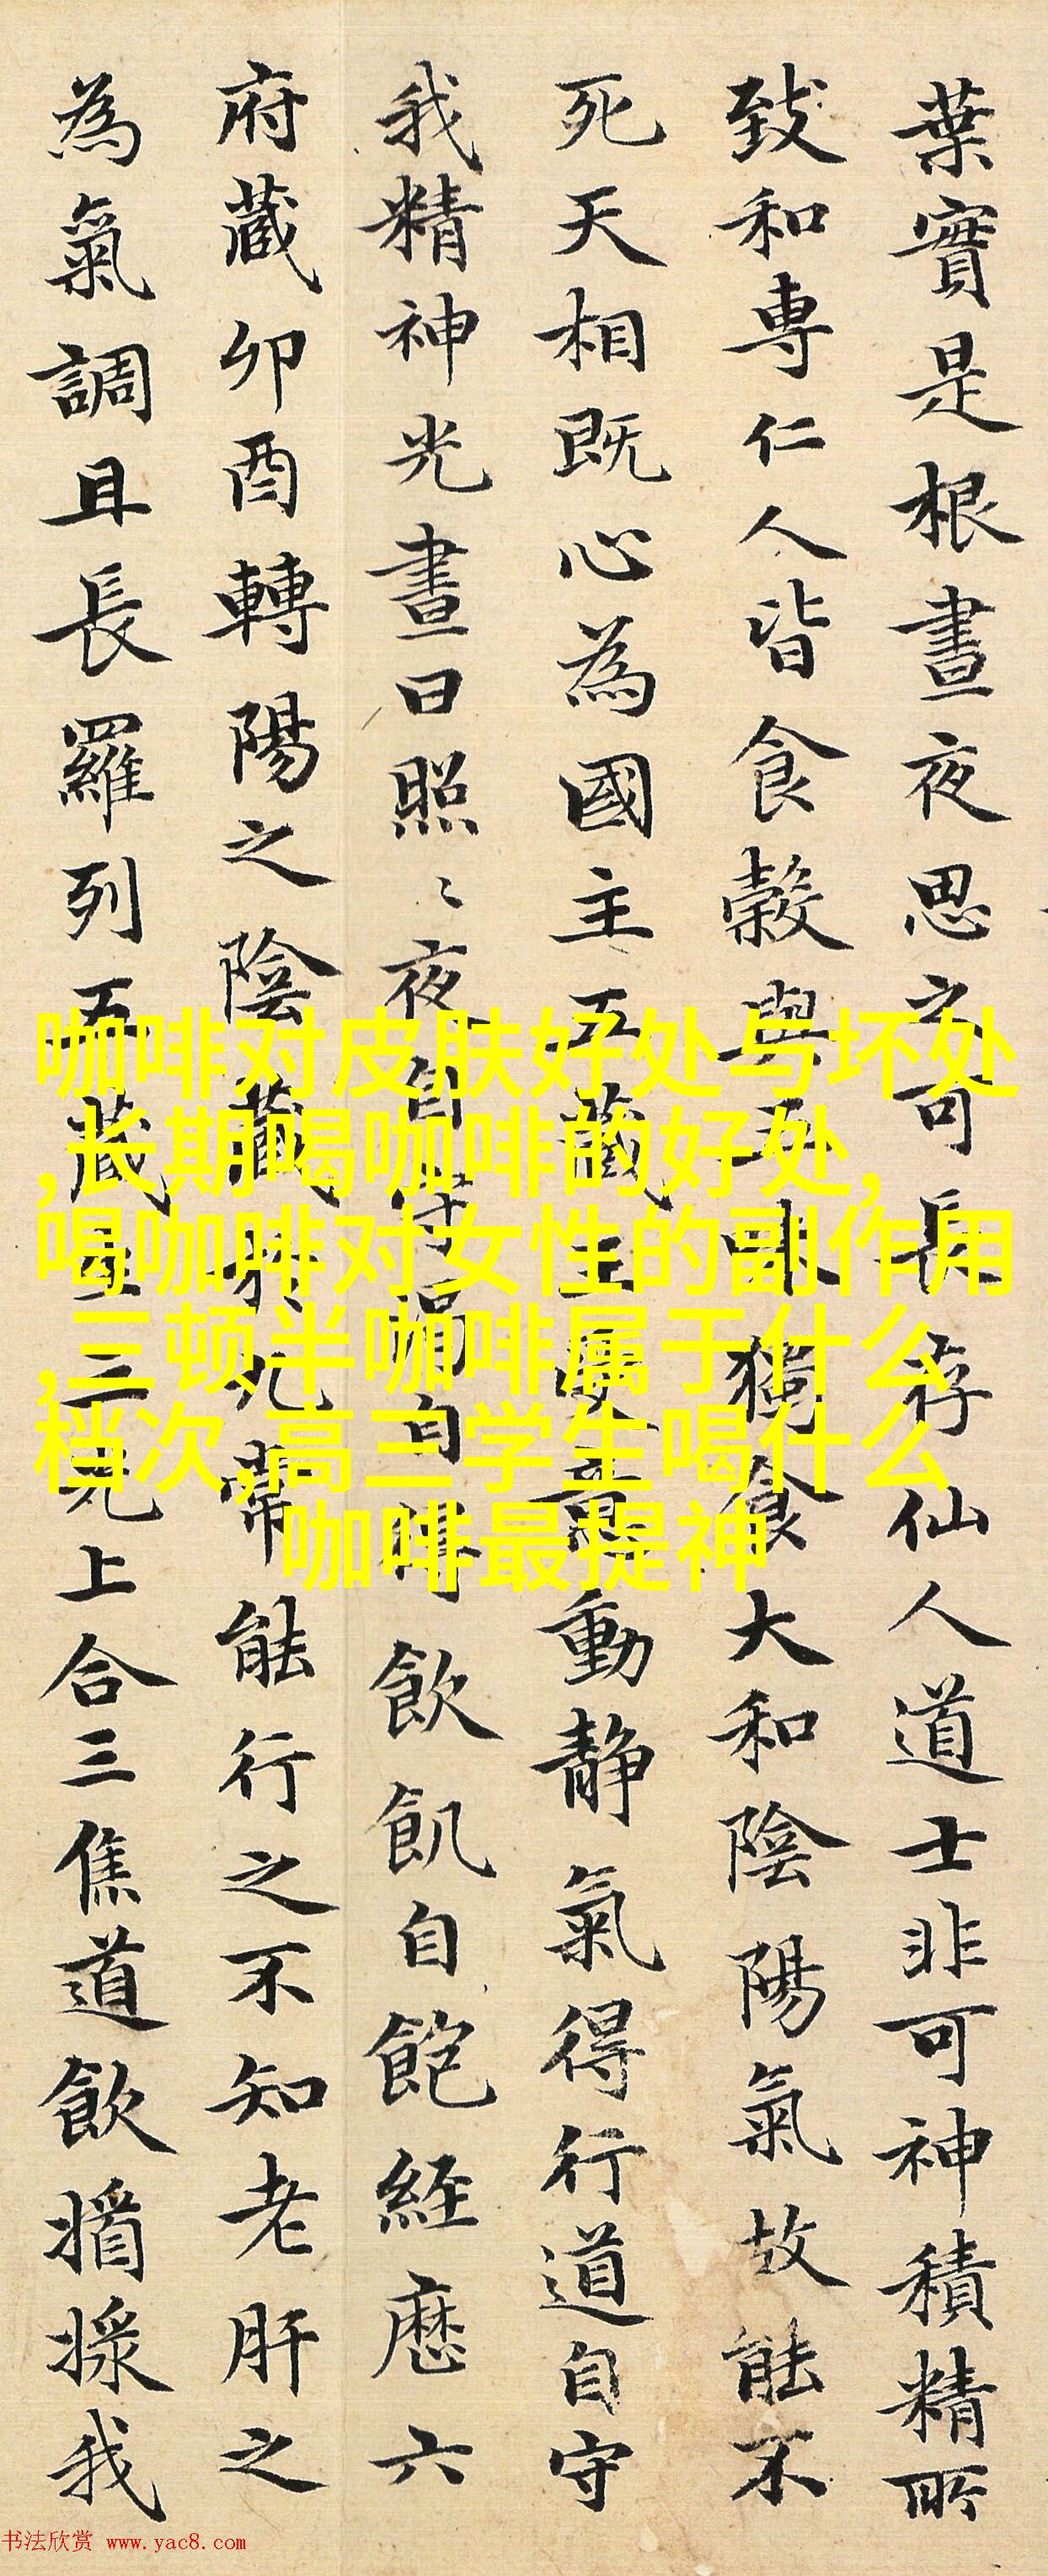 葉實是根晝夜思之可長存仙人道士非可神積精所
致和專仁人皆食穀與五味獨食大和陰陽氣故能不
死天相既心為國主五藏王受意動静氣得行道自守
我精神光晝日照〻夜自守渴自得飲飢自飽經歷六
府藏卯酉轉陽之陰藏於九常能行之不知老肝之
為氣調且長羅列五藏主三光上合三焦道飲
我
咖啡对皮肤好处与坏处
,长期喝咖啡的好处,
喝咖啡对女性的副作用
,三顿半咖啡属于什么
档次,高三学生喝什么
咖啡最提神
书法欣赏 www.yac8.com